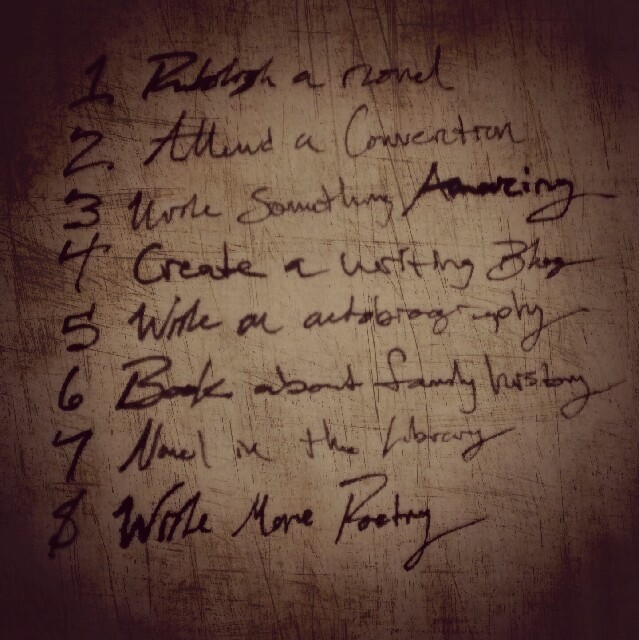 1 Publish a novel
2. Attend a Convention
3 Write Something Amazing
4 Create a writing Blog
5 Write an autobiography
6 Book about family history
7 Novel in the Library
8 Write More Poetry